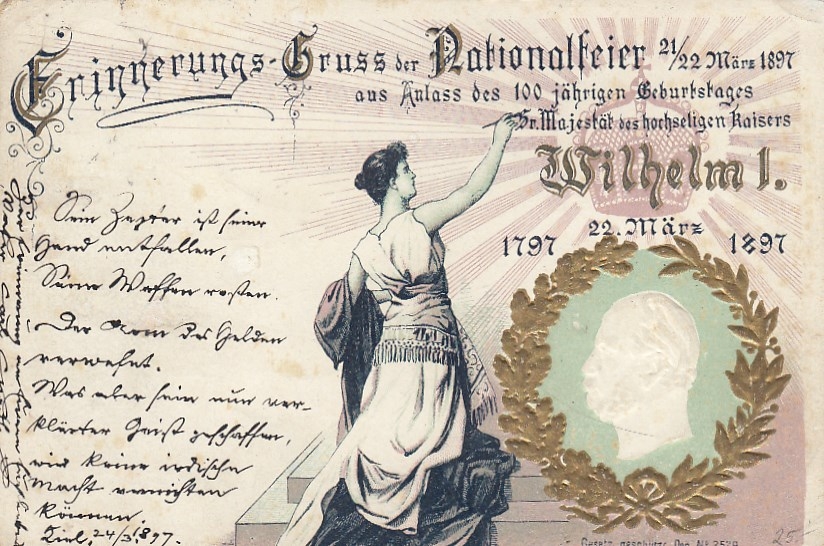 Erinnerungs-Gruss der Nationalfeier 21/22 März 1897
aus Anlass des 100 jährigen Geburtstages
Sr. Majestät des hochseligen Kaisers
Wilhelm I.
22. März
1797 1897
Sein Zepter ist seiner
Hand entfallen,
Seine Waffen rosten.
Der Arm des Helden
verwehst.
Was aber sein nun ver-
klärter Geist geschaffen,
wird keine irdische
Macht vernichten
können.
Kiel, 24/3 1897.
Zur Erinnerung an
Gesetz. geschützt Deo. No 2529
25.-